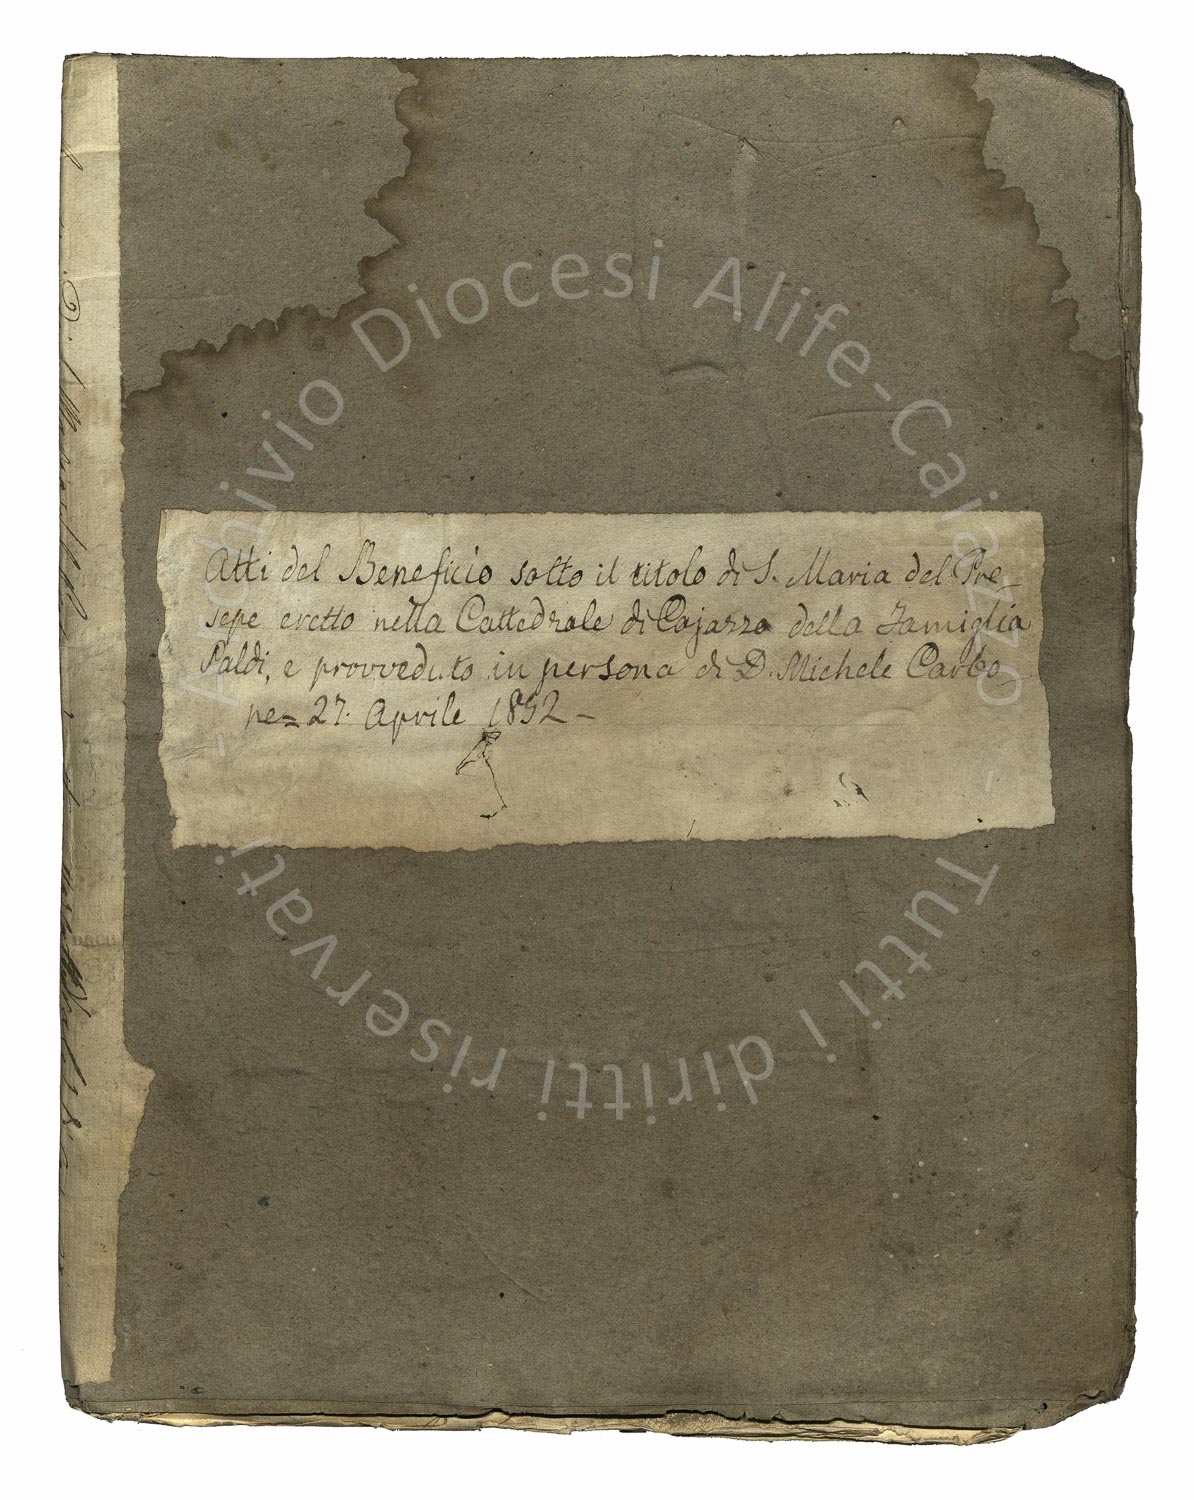 Atti del Beneficio sotto il titolo di S. Maria del Pre-
sepe eretto nella Cattedrale di Cajazzo della Famiglia
Paldi, e provveduto in persona di D. Michele Carbo-
ne= 27. Aprile 1892 -
- Archivio Diocesi Alife-Caiazzo - Tutti i diritti riservati